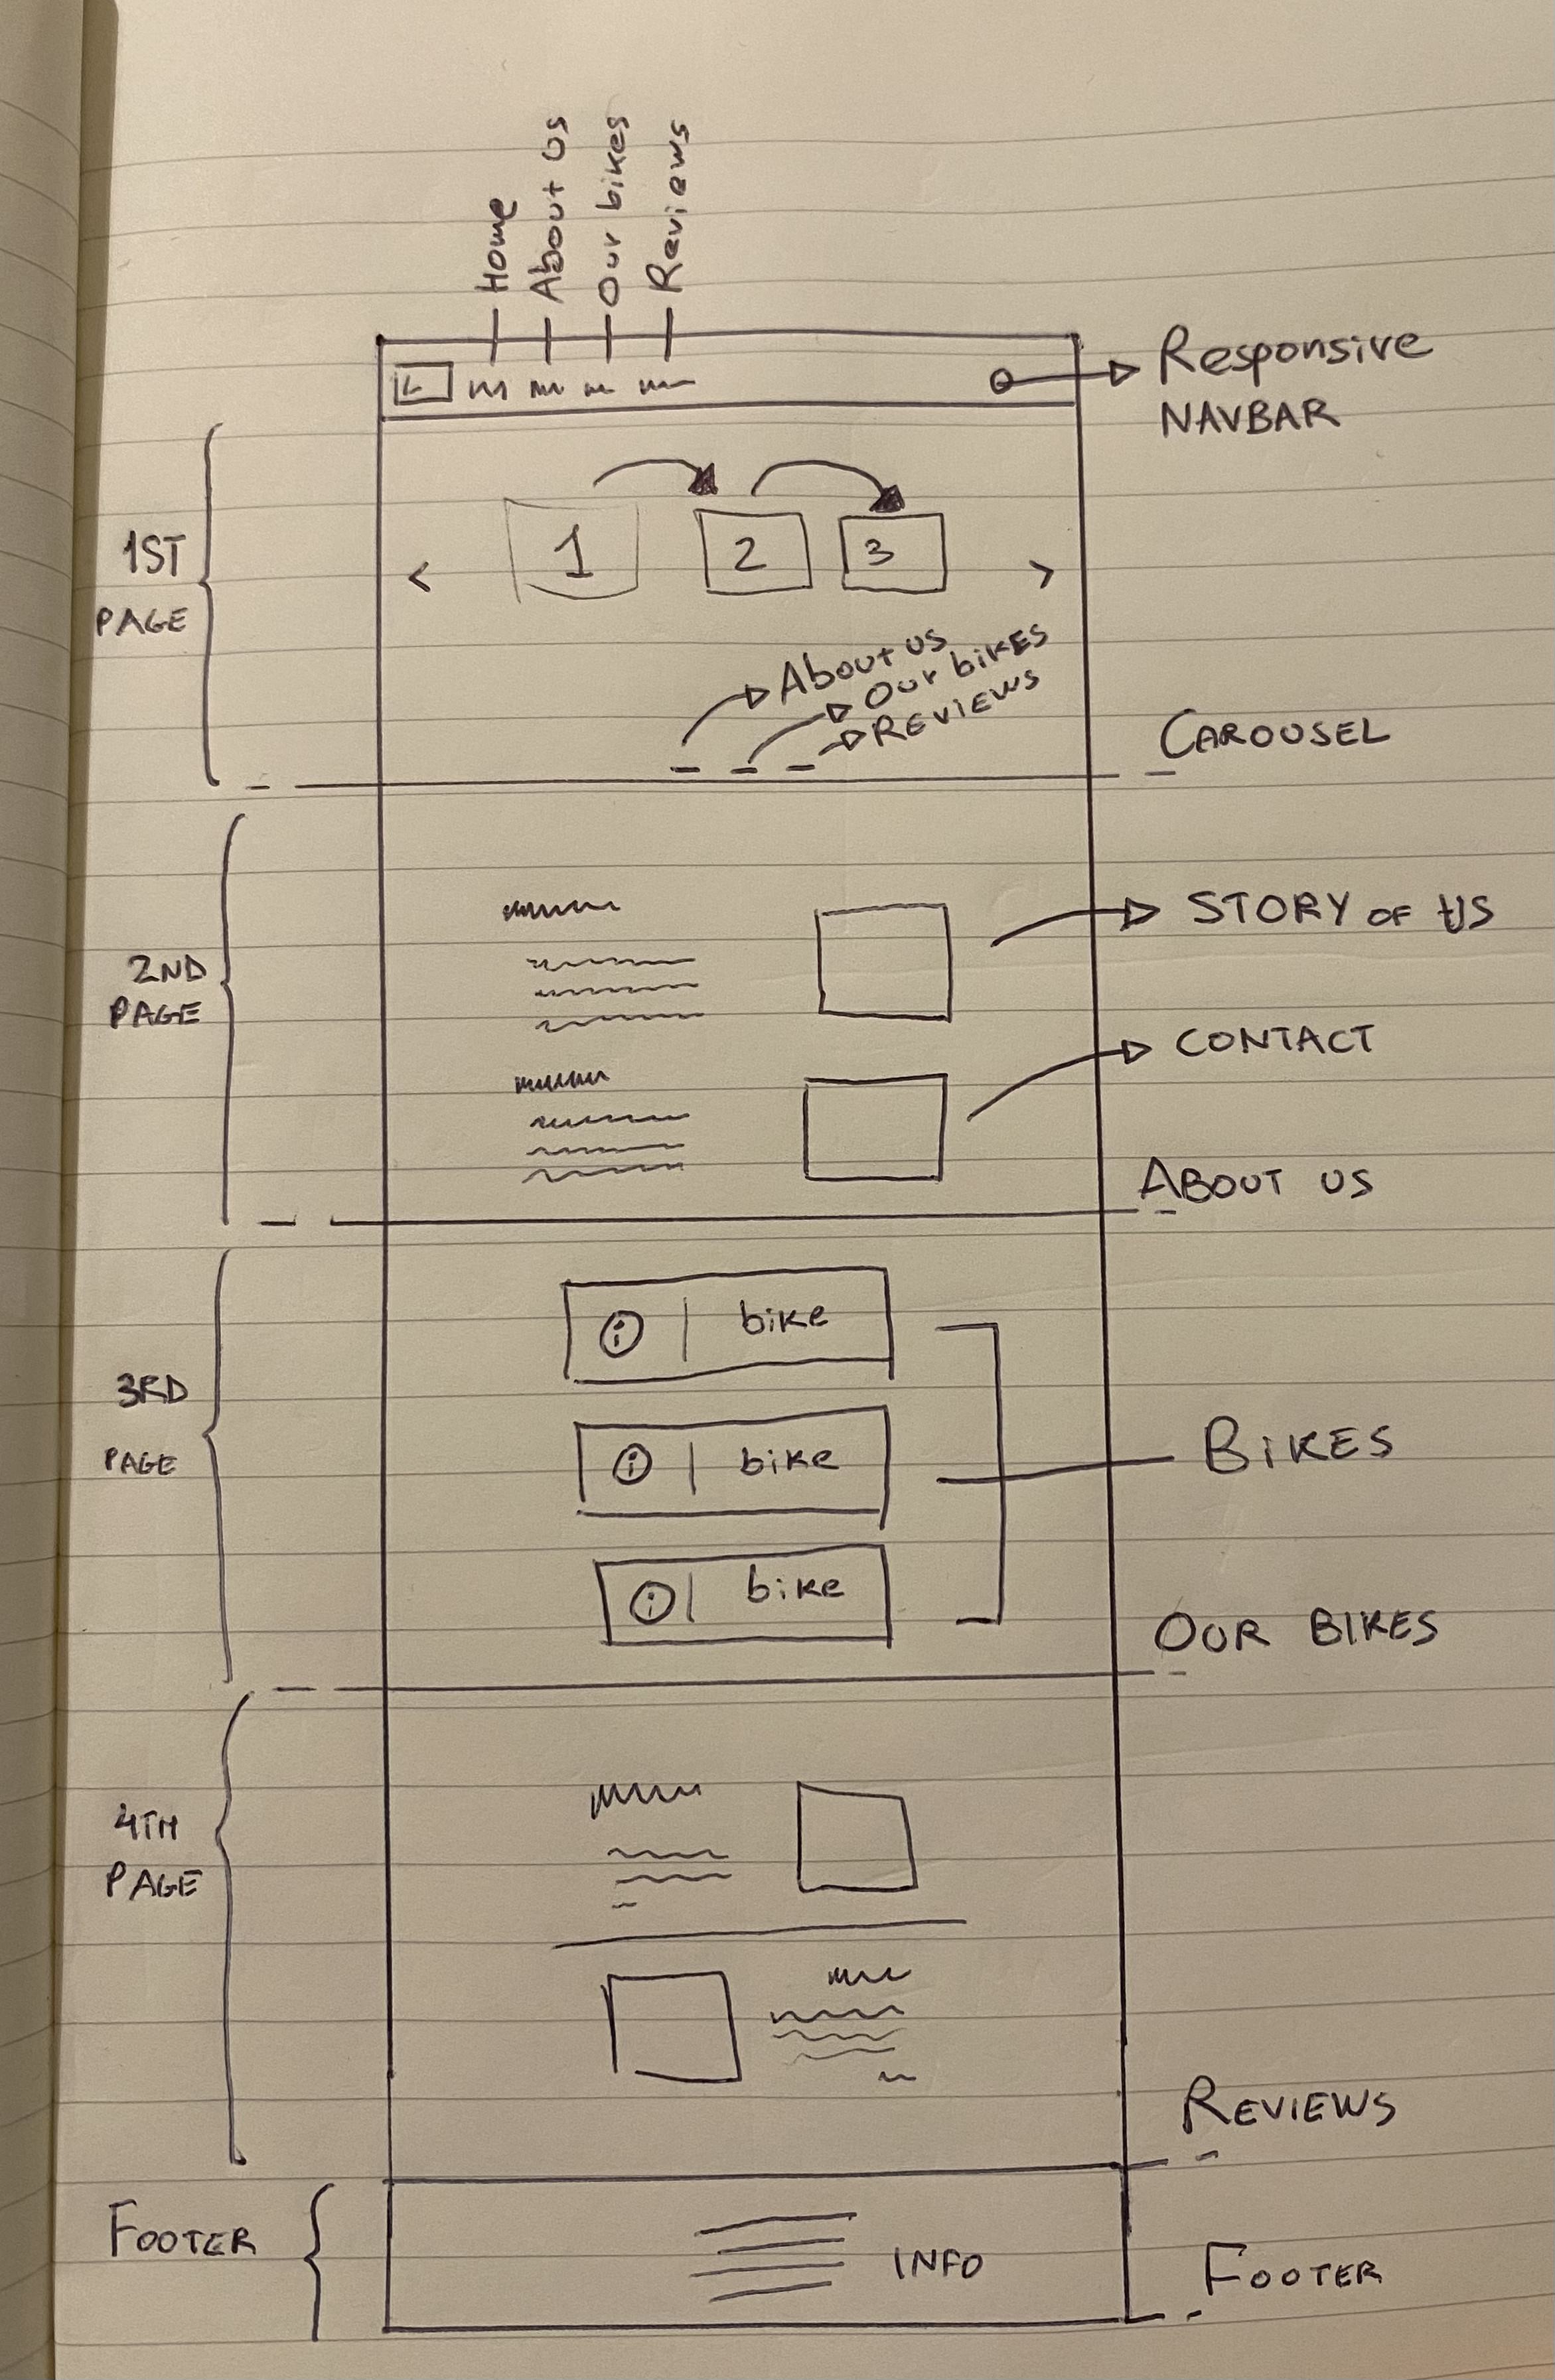 Home
About Us
Our bikes
Reviews
L
Responsive
NAVBAR
1ST
PAGE
1
2
3
<
>
About us
Our bikes
REVIEWS
CAROUSEL
2ND
PAGE
STORY OF US
CONTACT
ABOUT US
3RD
PAGE
i | bike
i | bike
i | bike
BIKES
OUR BIKES
4TH
PAGE
REVIEWS
FOOTER
INFO
FOOTER